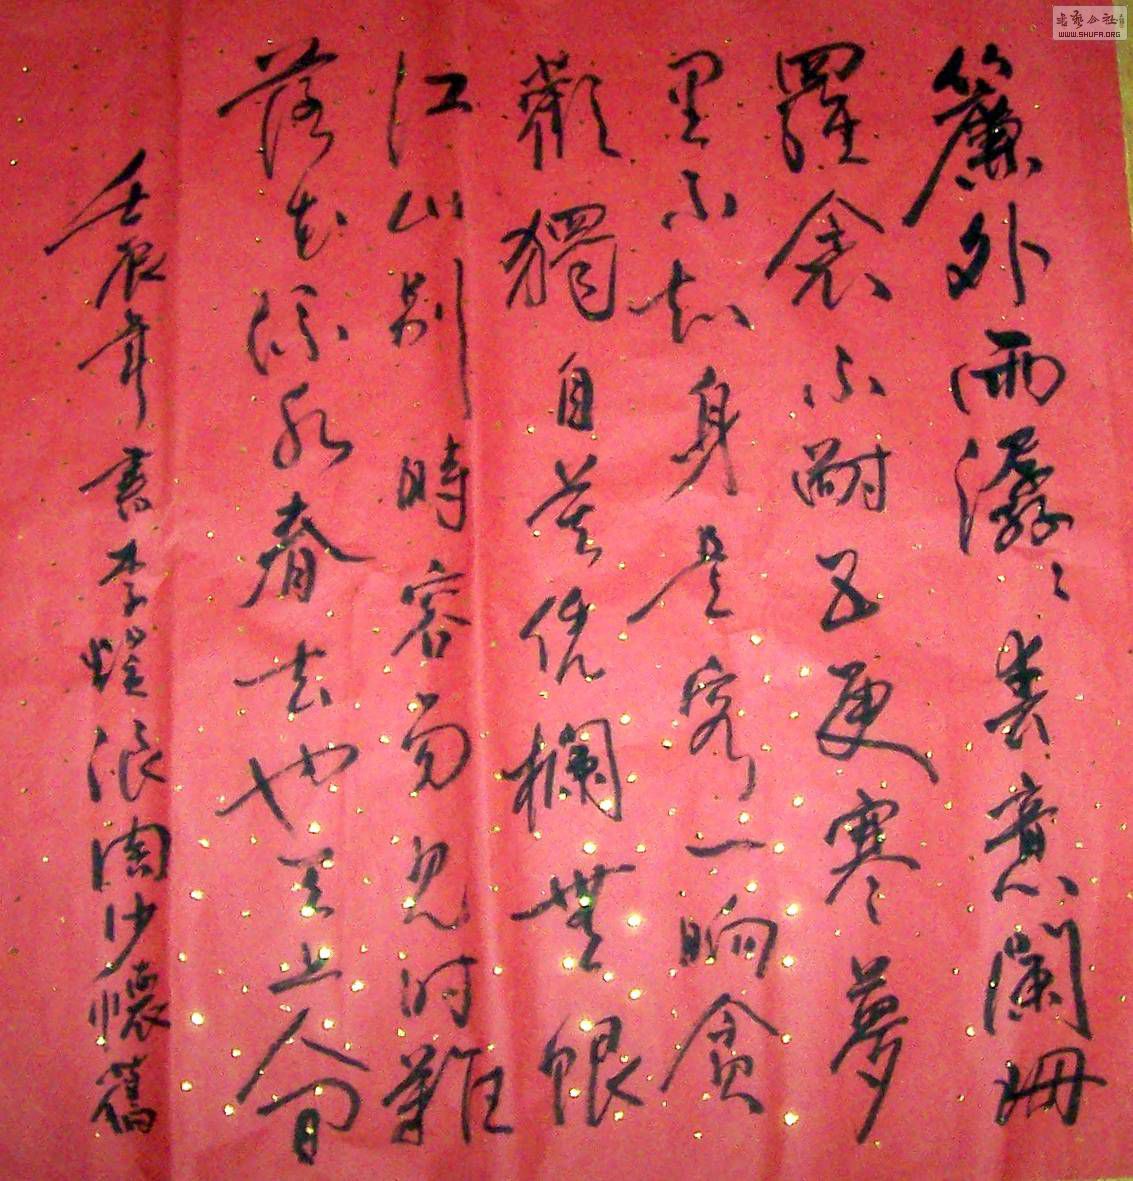 簾外雨潺〻春意闌珊
羅衾不耐五更寒夢
里不知身是客一晌貪
歡獨自莫凭欄無限
江山别時容易見时難
落花流水春去也天上人间
壬辰年書李煜浪淘沙懷舊
書藝公社
WWW.SHUFA.ORG